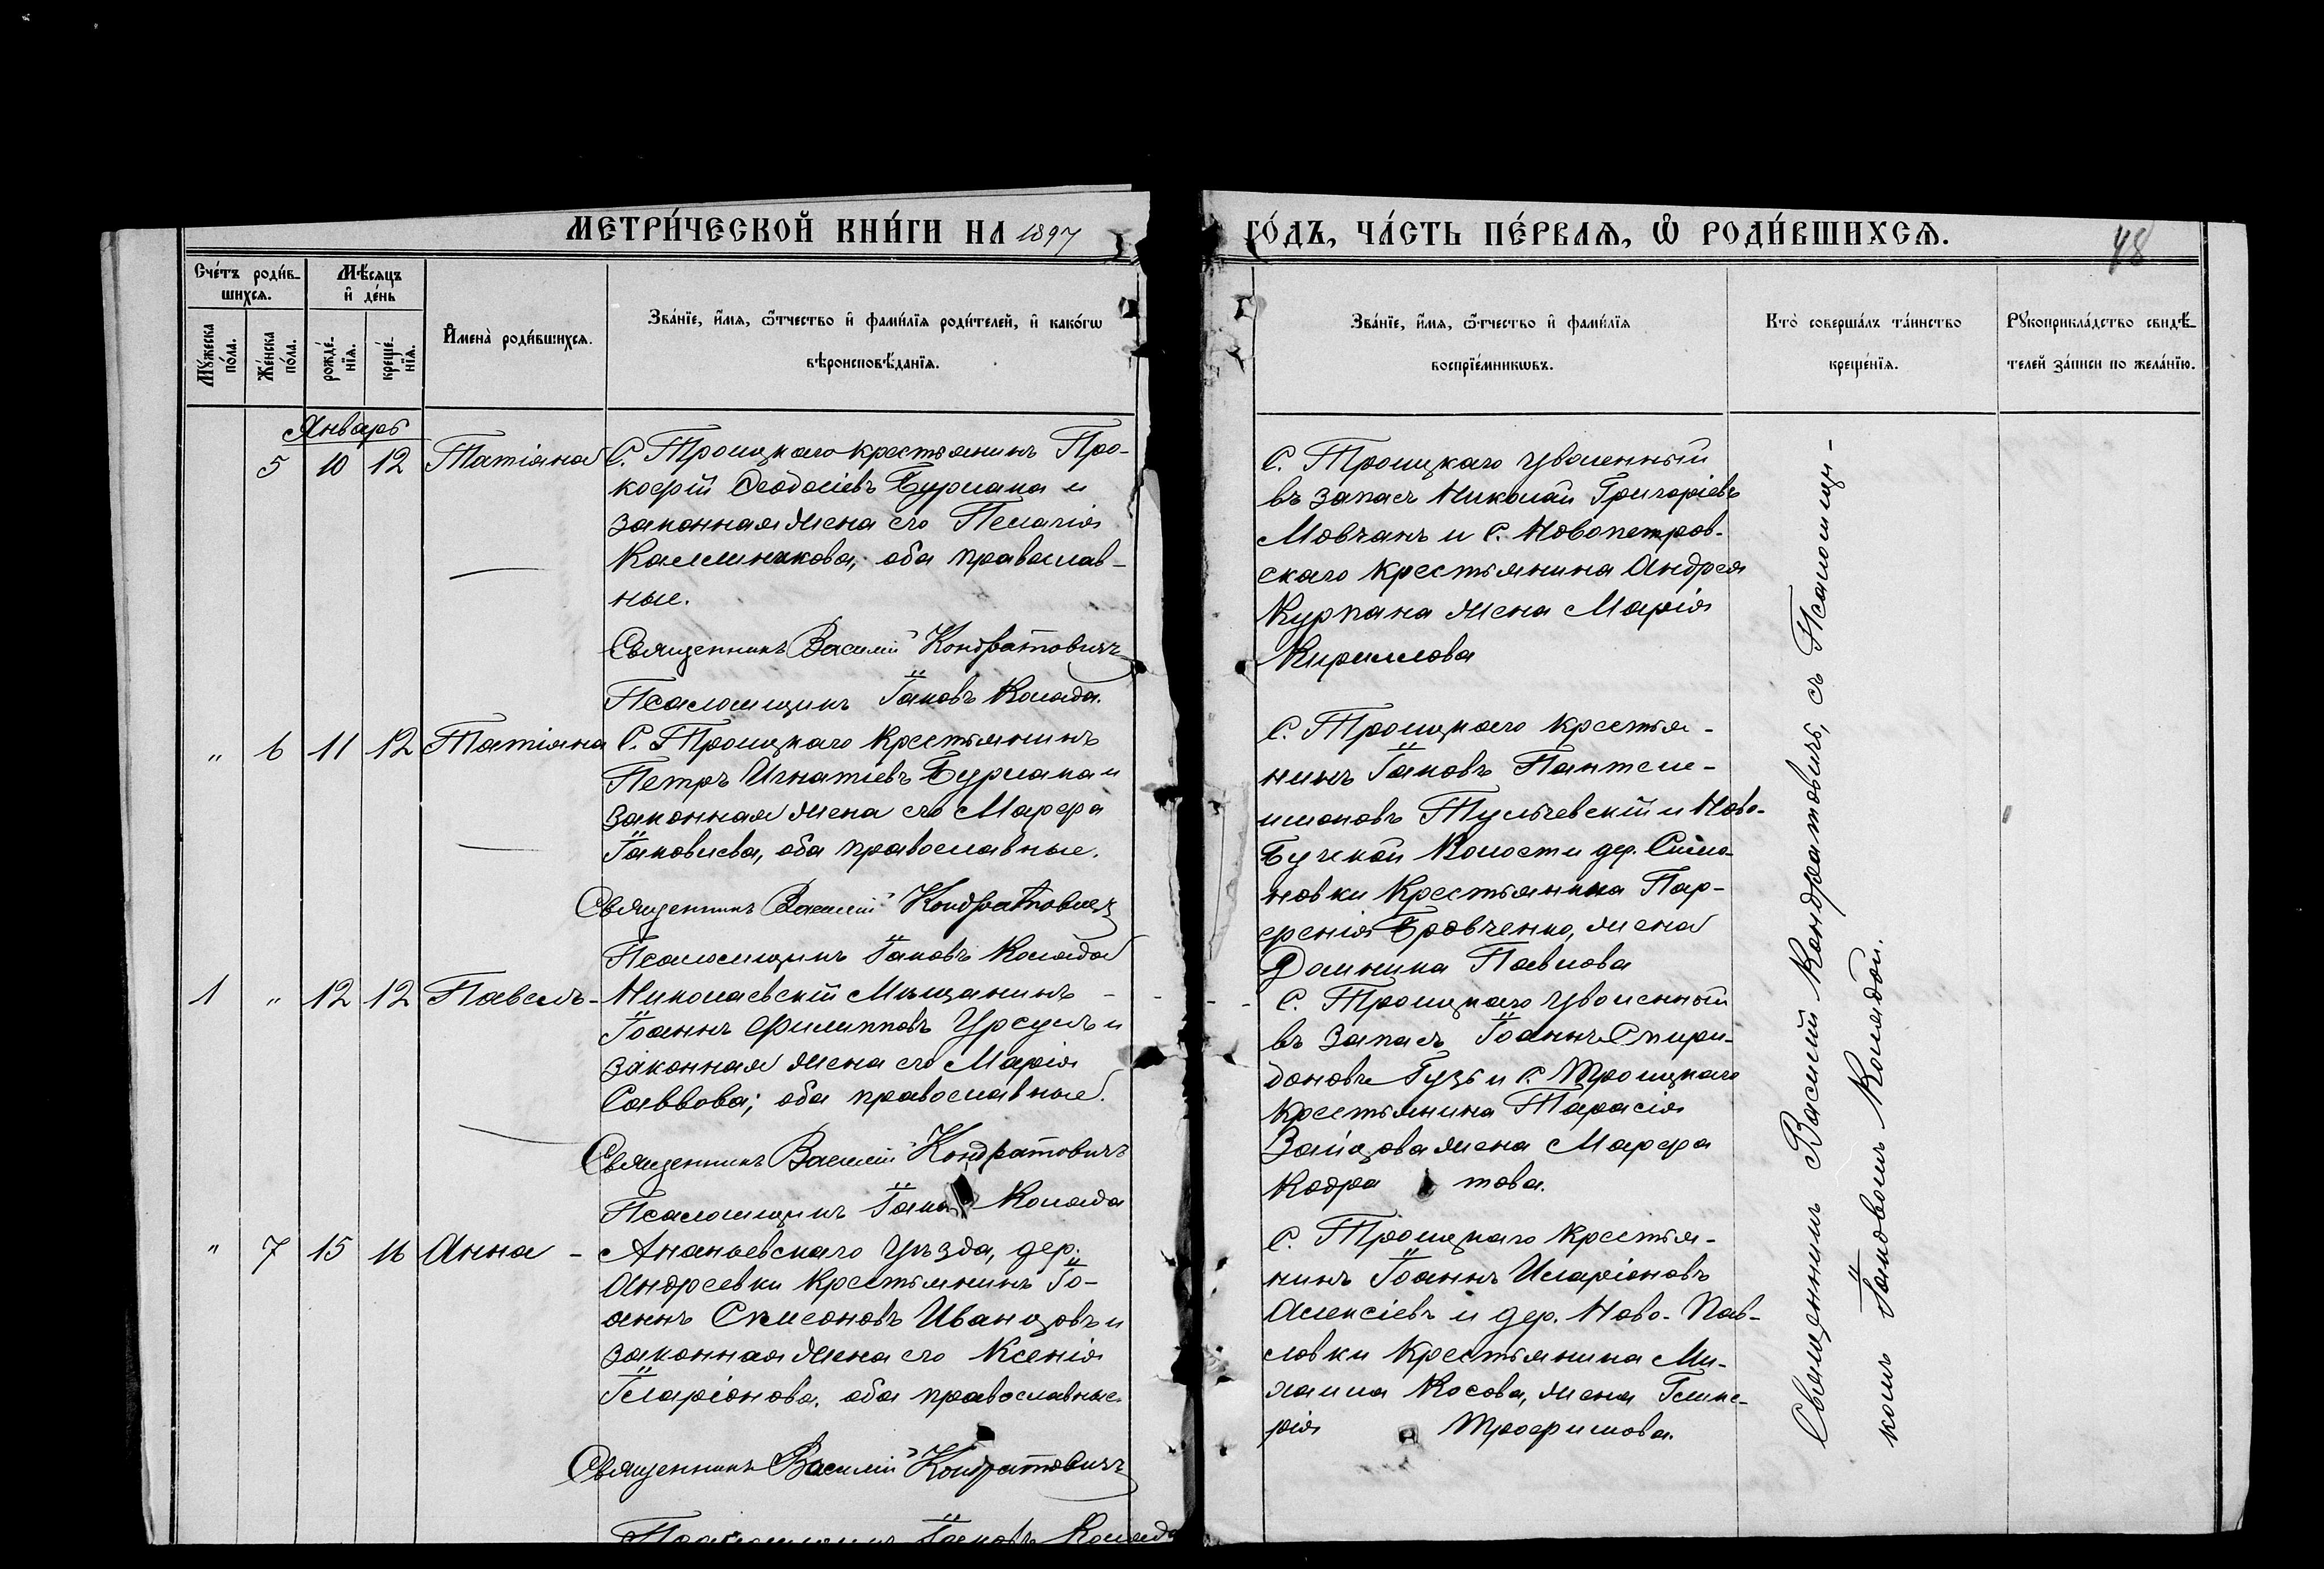 МЕТРИ́ЧЕСКОЙ КНИ́ГИ НА 1897 ГО́ДЪ, ЧА́СТЬ ПЕ́РВАѦ, Ѡ҆ РОДИ́ВШИХСѦ.
48
Сче́тъ роди́в-
шихсѧ.
Мѣ́сѧцъ
и҆ де́нь
Мꙋ́жеска по́ла.
Же́нска по́ла.
рожде́-нїѧ.
креще́-нїѧ.
И҆мена̀ роди́вшихсѧ.
Зва́нїе, и҆́мѧ, ѻ҆́тчество и҆ фами́лїѧ роди́телей, и҆ како́гѡ
вѣроисповѣ́данїѧ.
Зва́нїе, и҆́мѧ, ѻ҆́тчество и҆ фами́лїѧ
воспрїе́мникѡвъ.
Кто̀ соверша́лъ та́инство
креще́нїѧ.
Рꙋкоприкла́дство свидѣ́-
телей за́писи по жела́нїю.
Январь
5 10 12 Татіана С. Троицкаго крестьянинъ Про-
кофій Ѳеодосіевъ Бурлака и
законная жена его Пелагія
Каллиникова, оба православ-
ные.
Священникъ Василій Кондратовичъ
Псаломщикъ Іаковъ Коляда.
С. Троицкаго уволенный
въ запасъ Николай Григоріевъ
Мовчанъ и С. Новопетров-
скаго крестьянина Андрея
Курпана жена Марія
Кириллова
" 6 11 12 Татіана С. Троицкаго крестьянинъ
Петръ Игнатіевъ Бурлака и
законная жена его Марфа
Іаковлева, оба православные.
Священникъ Василій Кондратовичъ
Псаломщикъ Іаковъ Коляда
С. Троицкаго крестья-
нинъ Іаковъ Пантеле-
имоновъ Тульчевскій и Ново-
Бугской Волости дер.
новки крестьянина Пар-
фенія Бровченко, жена
Домника Павлова
1 " 12 12 Павелъ - Николаевскій Мѣщанинъ -
Іоаннъ Филипповъ Урсулъ и
законная жена его Марія
Саввова; оба православные.
Священникъ Василій Кондратовичъ
Псаломщикъ Іаковъ Коляда
С. Троицкаго уволенный
въ запасъ Іоаннъ Спири-
доновъ Гузь и С. Троицкаго
крестьянина Тарасія
Заїцова жена Марфа
Кодратова.
" 7 15 16 Анна - Ананьевскаго Уѣзда, дер.
Андреевки крестьянинъ Іо-
аннъ Симеоновъ Иванцовъ и
законная жена его Ксенія
Іларіонова, оба православные.
Священникъ Василій Кондратовичъ
Псаломщикъ Іаковъ Коляда
С. Троицкаго крестья-
нинъ Іоаннъ Иларіоновъ
Алексіевъ и дер. Ново-Пав-
ловки крестьянина Ми-
хаила Косова, жена Глике-
рія Трофимова.
Священникъ Василій Кондратовичъ, съ Псаломщи-
комъ Іаковомъ Колядой.